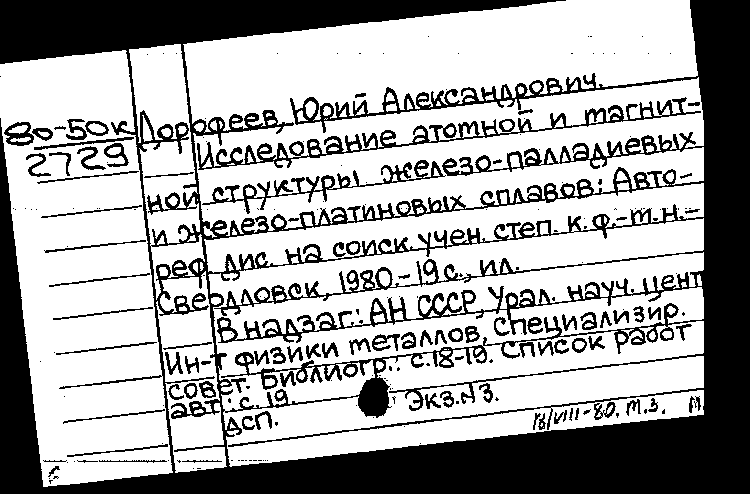 80-50к
2729
Дорофеев, Юрий Александрович.
Исследование атомной и магнит-
ной структуры железо-палладиевых
и железо-платиновых сплавов: Авто-
реф. дис. на соиск. учен. степ. к.ф.-м.н.-
Свердловск, 1980.-19с., ил.
В надзаг.: АН СССР, Урал. науч. цент
Ин-т физики металлов, Специализир.
совет. Библиогр.: с.18-19. Список работ
авт.: с.19.
ДСП. Экз.№3.
18/VIII-80. М.З. М.